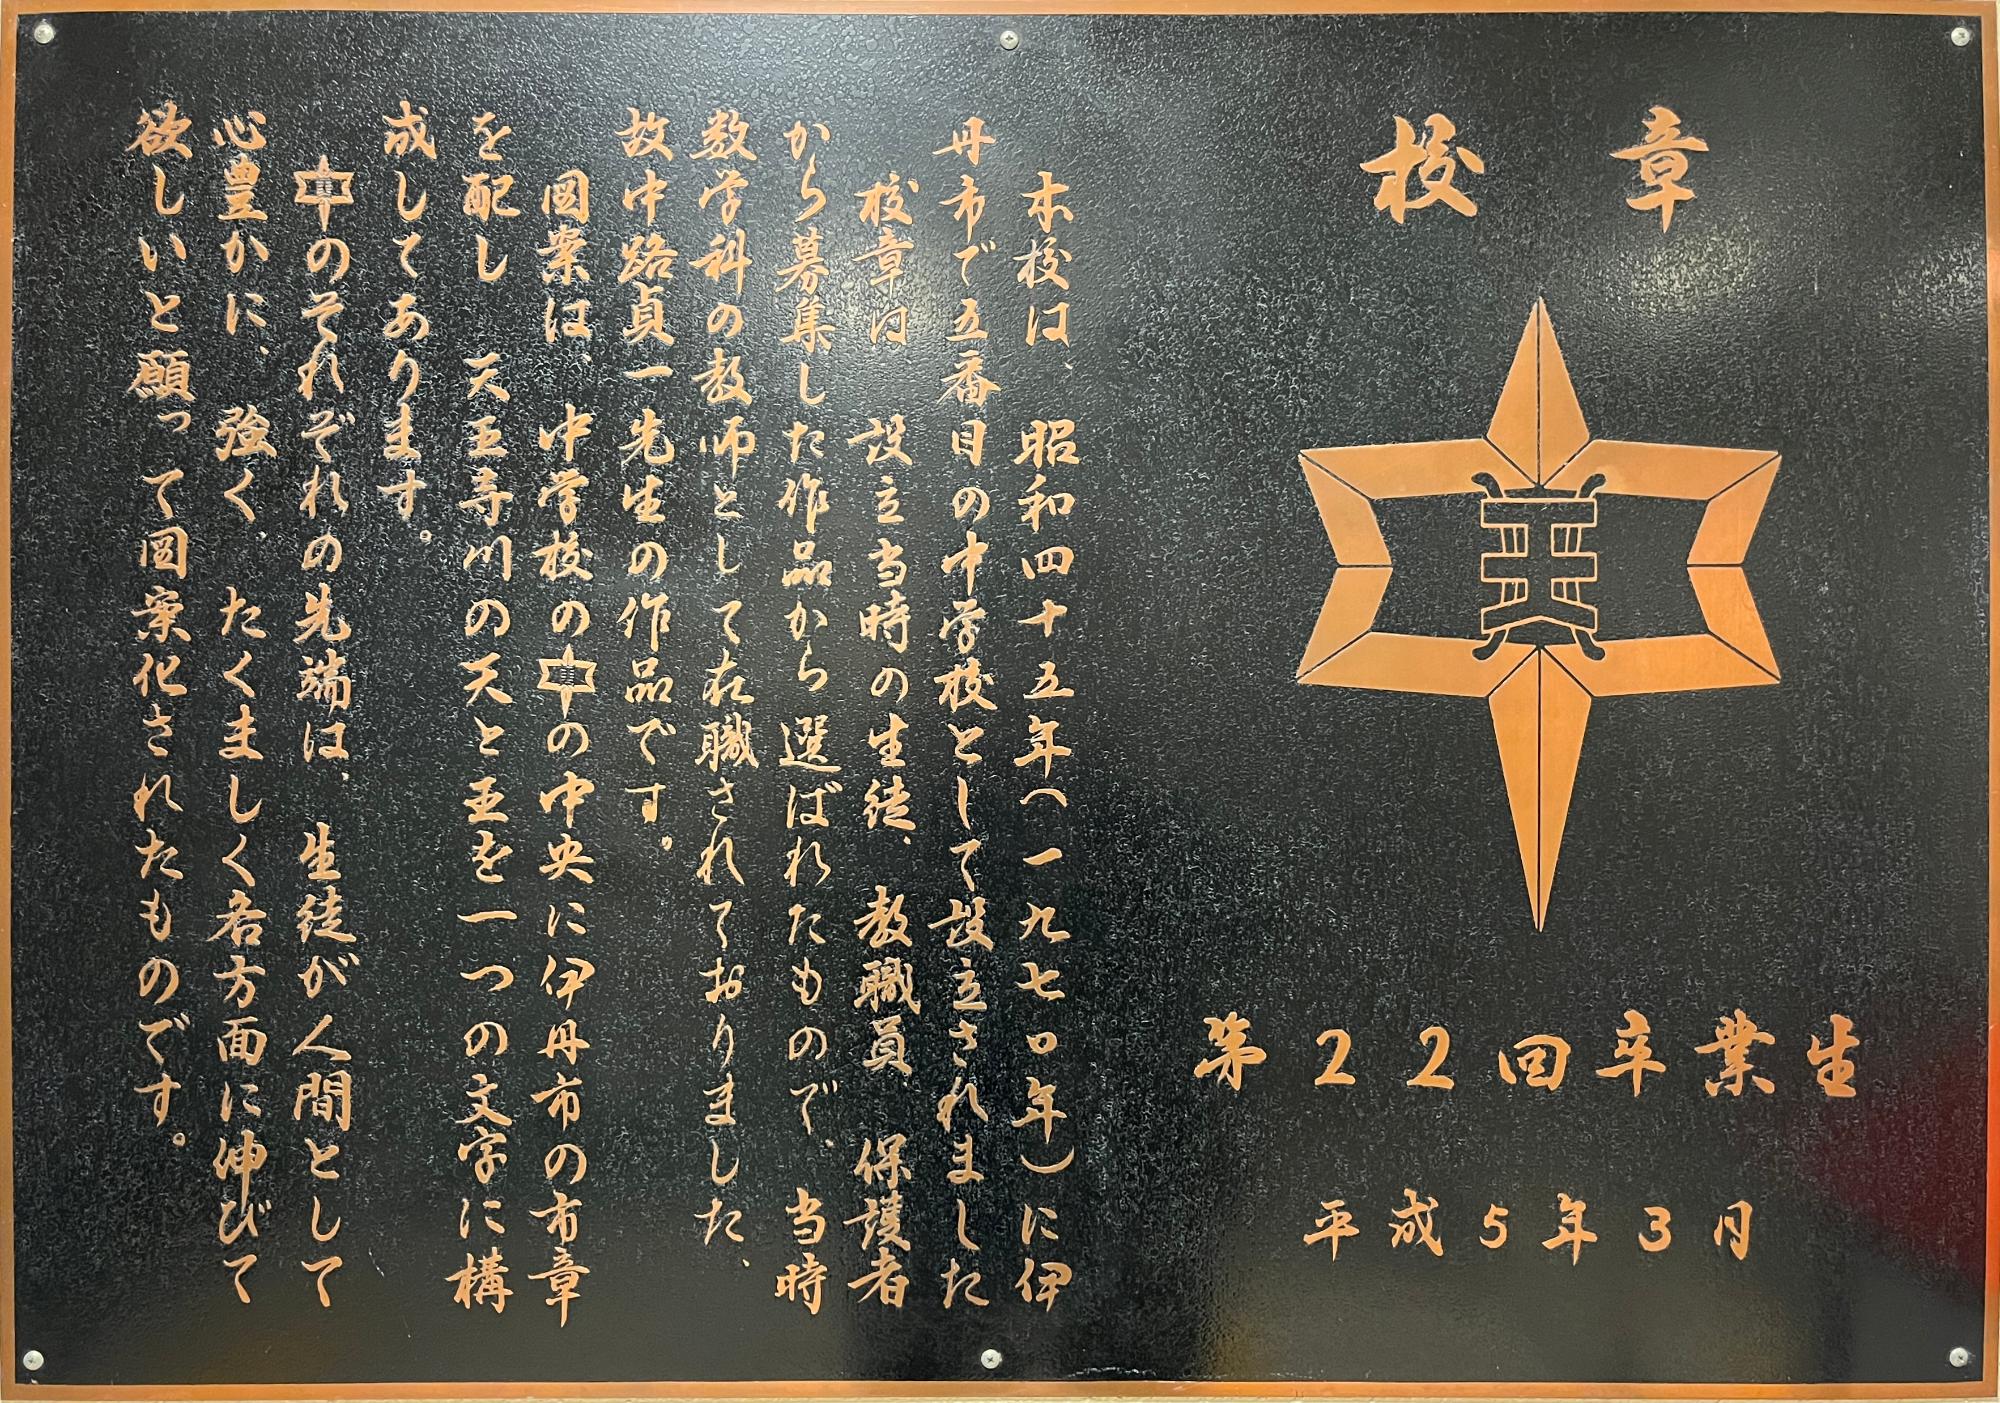 校章
第22回卒業生
平成5年3月
本校は、昭和四十五年(一九七〇年)に伊
丹市で五番目の中学校として設立されました
校章は 設立当時の生徒、教職員、保護者
から募集した作品から選ばれたもので、当時
数学科の教師として在職されておりました、
故中路貞一先生の作品です。
図案は、中学校の中の中央に伊丹市の市章
を配し 天王寺川の天と王を一つの文字に構
成してあります。
中のそれぞれの先端は、生徒が人間として
心豊かに、強く、たくましく各方面に伸びて
欲しいと願って図案化されたものです。